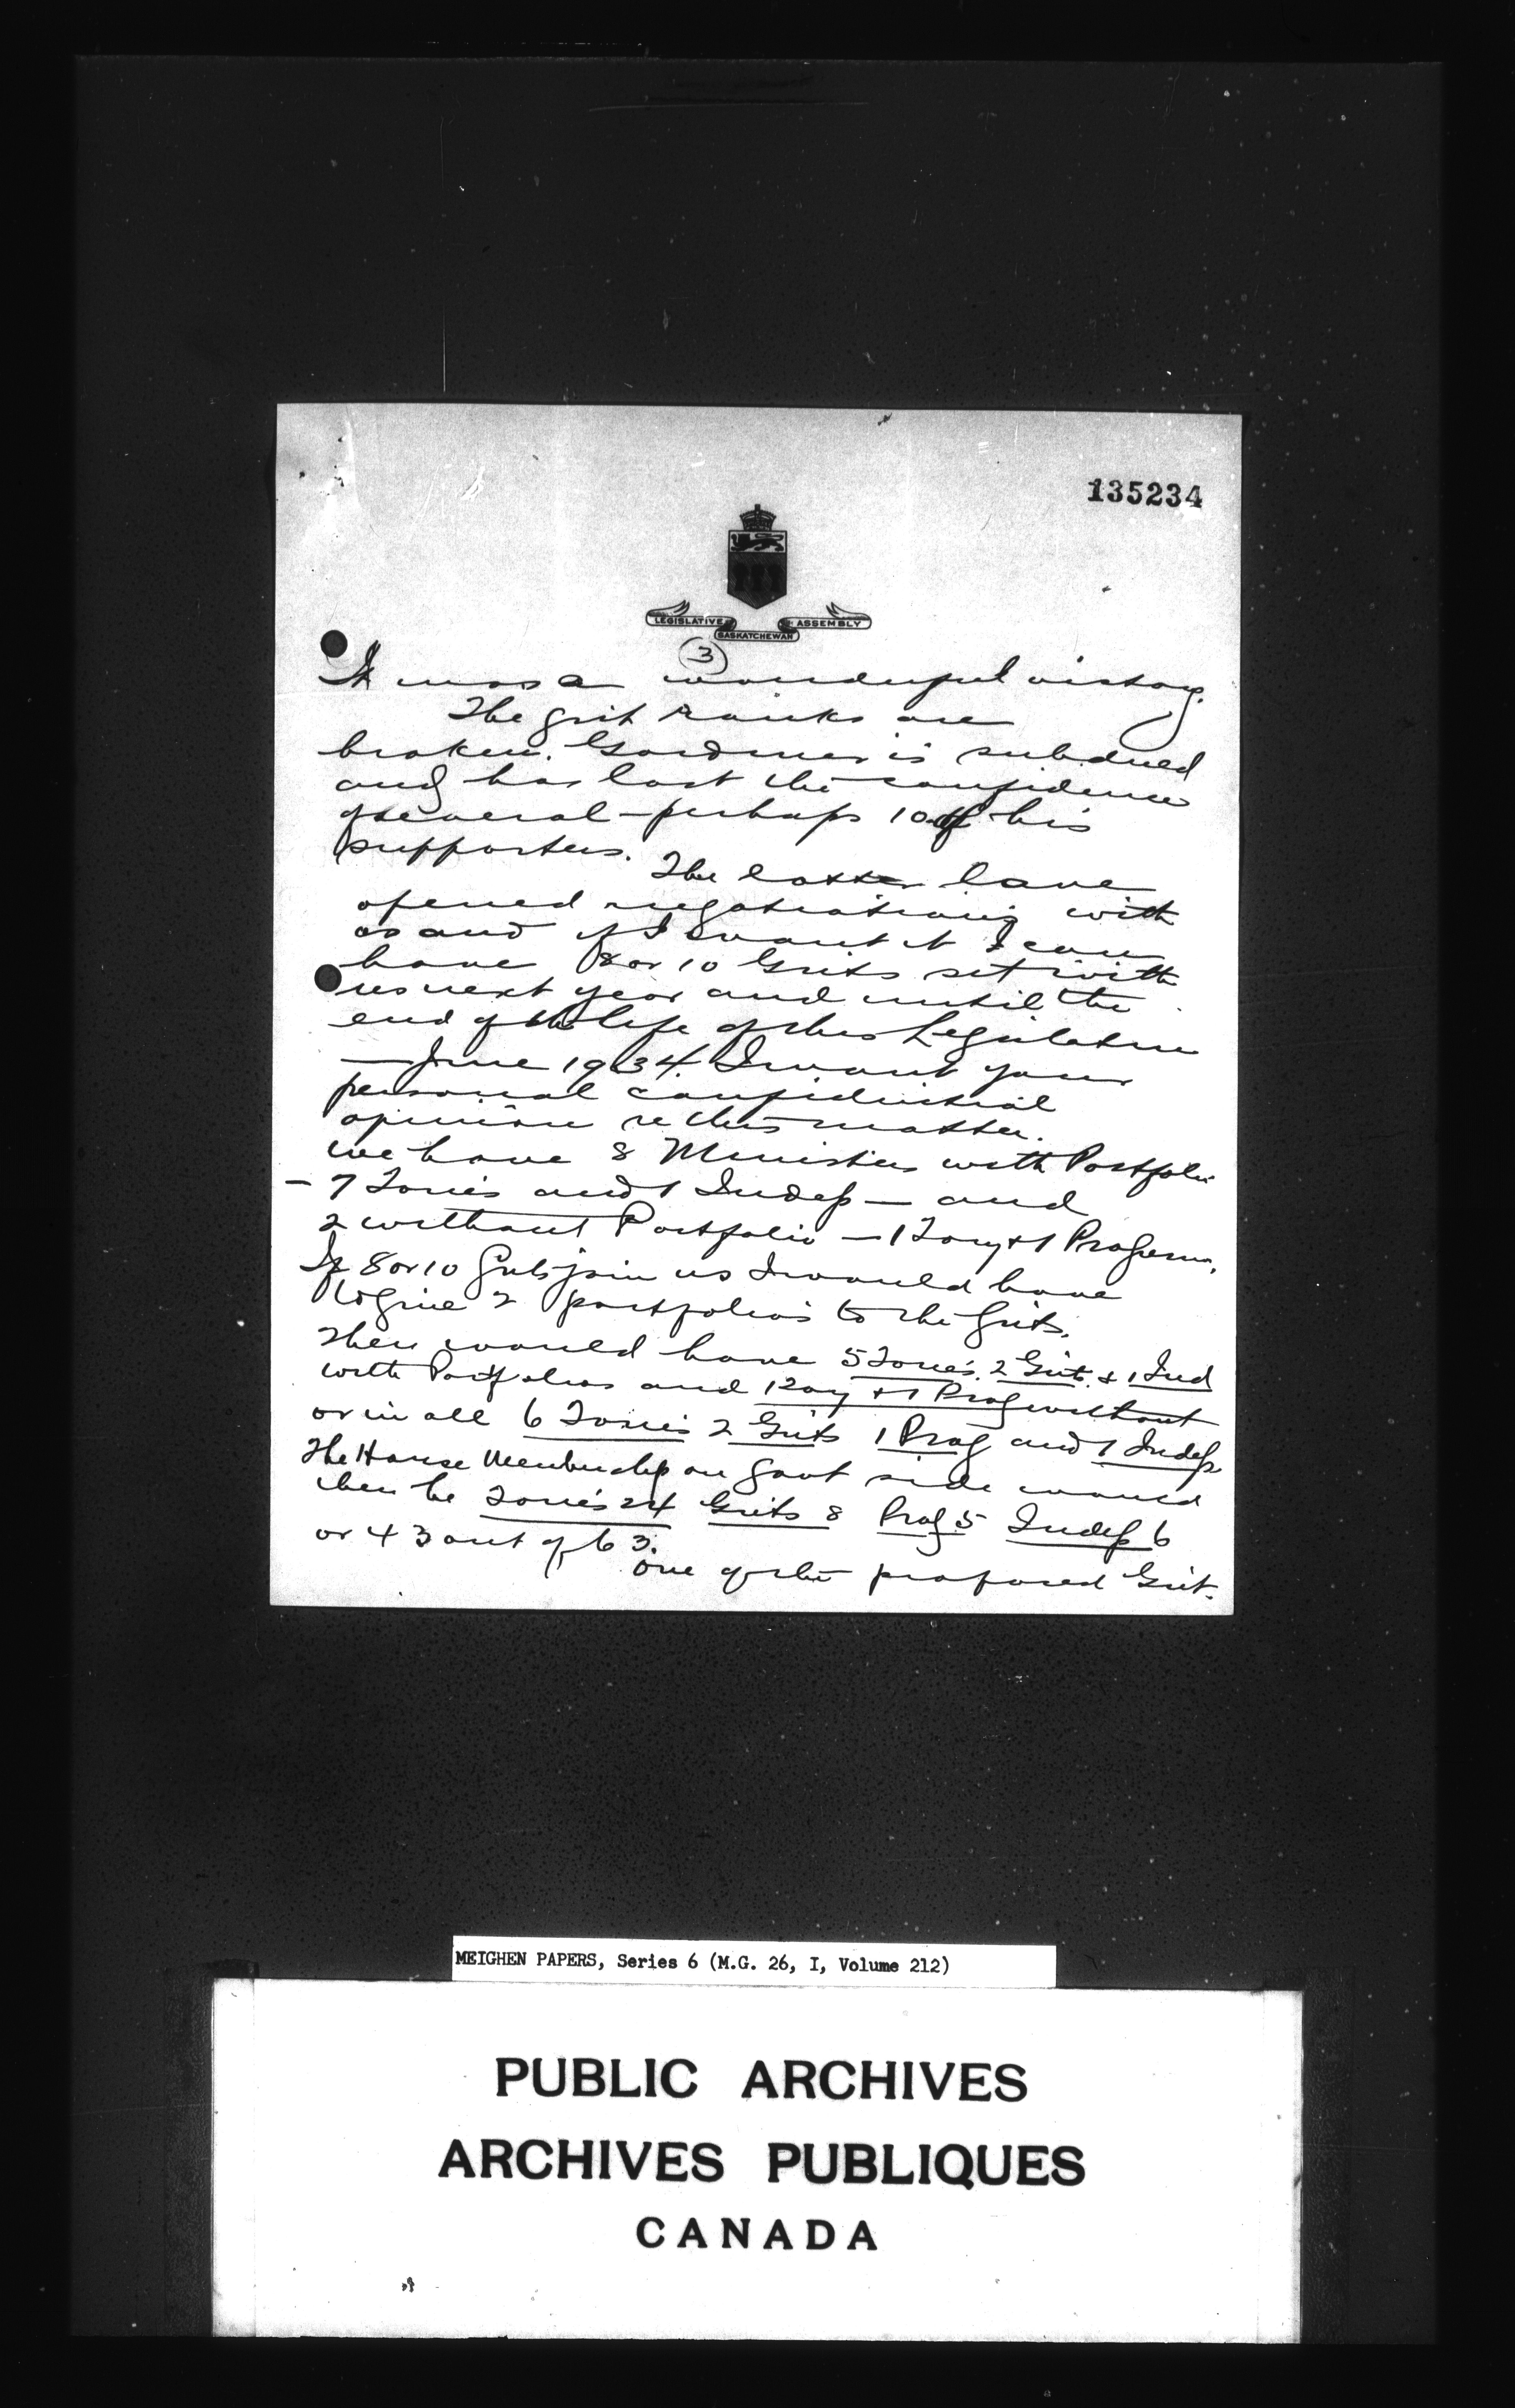 135234
LEGISLATIVE ASSEMBLY
SASKATCHEWAN
3
It was a wonderful victory.
The Grit ranks are
broken. Gardiner is subdued
and has lost the confidence
of several - perhaps 10 of his
supporters.
The latter have
opened negotiations with
us and if I want it I can
have 8 or 10 Grits sit with
us next year and until the
end of the life of this Legislature
- June 1934. I want your
personal confidential
opinion re this matter.
We have 8 Ministers with Portfolio
- 7 Tories and 1 Indep - and
2 without Portfolio - 1 Tory + 1 Progressive.
If 8 or 10 Grits join us I would have
to give 2 portfolios to the Grits.
Then would have 5 Tories, 2 Grits + 1 Ind
with Portfolios and 1 Tory + 1 Prog without
or in all 6 Tories 2 Grits 1 Prog and 1 Indep
The House Membership on Govt side would
then be Tories 24 Grits 8 Prog 5 Indep 6
or 43 out of 63.
One of the proposed Grit
MEIGHEN PAPERS, Series 6 (M.G. 26, I, Volume 212)
PUBLIC ARCHIVES
ARCHIVES PUBLIQUES
CANADA